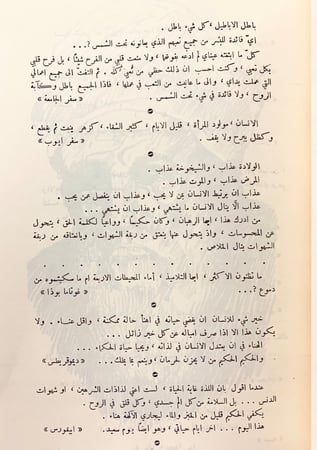 باطل الاباطيل ، كل شيء باطل .
ايّة فائدة للبشر من جميع تعبهم الذي يعانونه تحت الشمس ?...
كل ما ابتغته عيناي لم ادعه يفوتهما ، ولا منعت قلبي من الفرح شيئاً ، بل فرح قلبي
بكل تعبي ، وكنت احسب ان ذلك حظي من تعبي كله . ثم التفتّ الى جميع اعمالي
التي عملت يداي ، والى ما عانيت من التعب في عملها ، فاذا الجميع باطل وكآبة
الروح ، ولا فائدة في شيء تحت الشمس .        « سفر الجامعة »
الانسان ، مولود المرأة ، قليل الايام ، كثير الشقاء . كزهر ينبت ثم يقطع ،
وكظل يبرح ولا يقف .        « سفر ايوب »
الولادة عذاب ، والشيخوخة عذاب .
المرض عذاب ، والموت عذاب .
عذاب ان يرتبط الانسان بمن لا يحب ، وعذاب ان ينفصل عمن يحب .
عذاب ألّا ينال الانسان ما يشتهي ، وعذاب ان يشتهي ...
من ادرك هذا ، ايها الرهبان ، وكان حكيماً ، وواعياً لكلمة الحق ، يتحول
عن المحسوسات . واذ يتحول عنها ينعتق من ربقة الشهوات ، وبانعتاقه من ربقة
الشهوات ينال الخلاص .
ما تظنون الاكثر ، ايها التلاميذ ، أماء المحيطات الاربعة ام ما سكبتموه من
دموع ?...        « غوتاما بوذا »
خير شيء للانسان ان يقضي حياته في اهنأ حالة ممكنة ، واقل عناء . ولا
يكون هذا الا اذا صرف آماله عن كل خير زائل ...
الهناء في ان يعتدل الانسان في لذاته ، ويحيا حياة الحكماء .
والحكيم الحكيم من لا يحزن لحرمان ، وينعم بما يملك ...        « ديموقريطس »
عندما اقول بان اللذة غاية الحياة ، لست اعني لذاذات الشرهين ، او شهوات
الدنس ... بل السلامة من كل ألم جسدي ، وكل قلق في الروح .
يكفي الحكيم قليل من الخبز والماء ليجاري الآلهة هناء .
هذا اليوم ... آخر ايام حياتي ، وهو ايضاً يوم سعيد .        « ابيقورس »